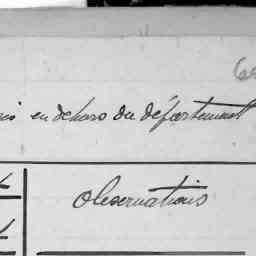 en dehors du département
Observations